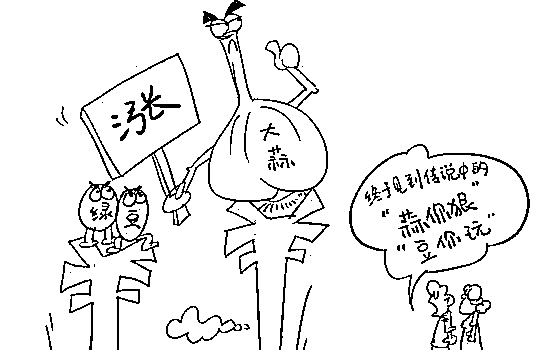 涨
大
蒜
绿
豆
终于见到传说中的
“蒜你狠”
“豆你玩”